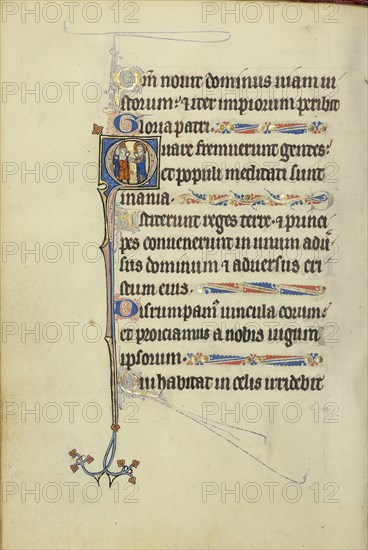 Qm̄ novit dominus viam iu
storum: ⁊ iter impiorum peribit
Gloria patri.
Quare fremuerunt gentes:
et populi meditati sunt
inania.
Astiterunt reges terre. ⁊ princi
pes convenerunt in unum adũ
sus dominum ⁊ adversus cri
stum eius.
Disrumpam᷒ vincula eorum:
et proiciamus a nobis iugum
ipsorum.
Qui habitat in celis irridebit
PHOTO 12